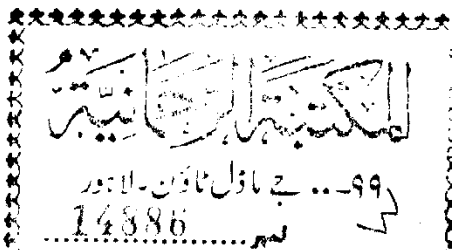 المكتبة الرحمانية
۹۹... جے ماڈل ٹاؤن۔ لاہور
نمبر 14886